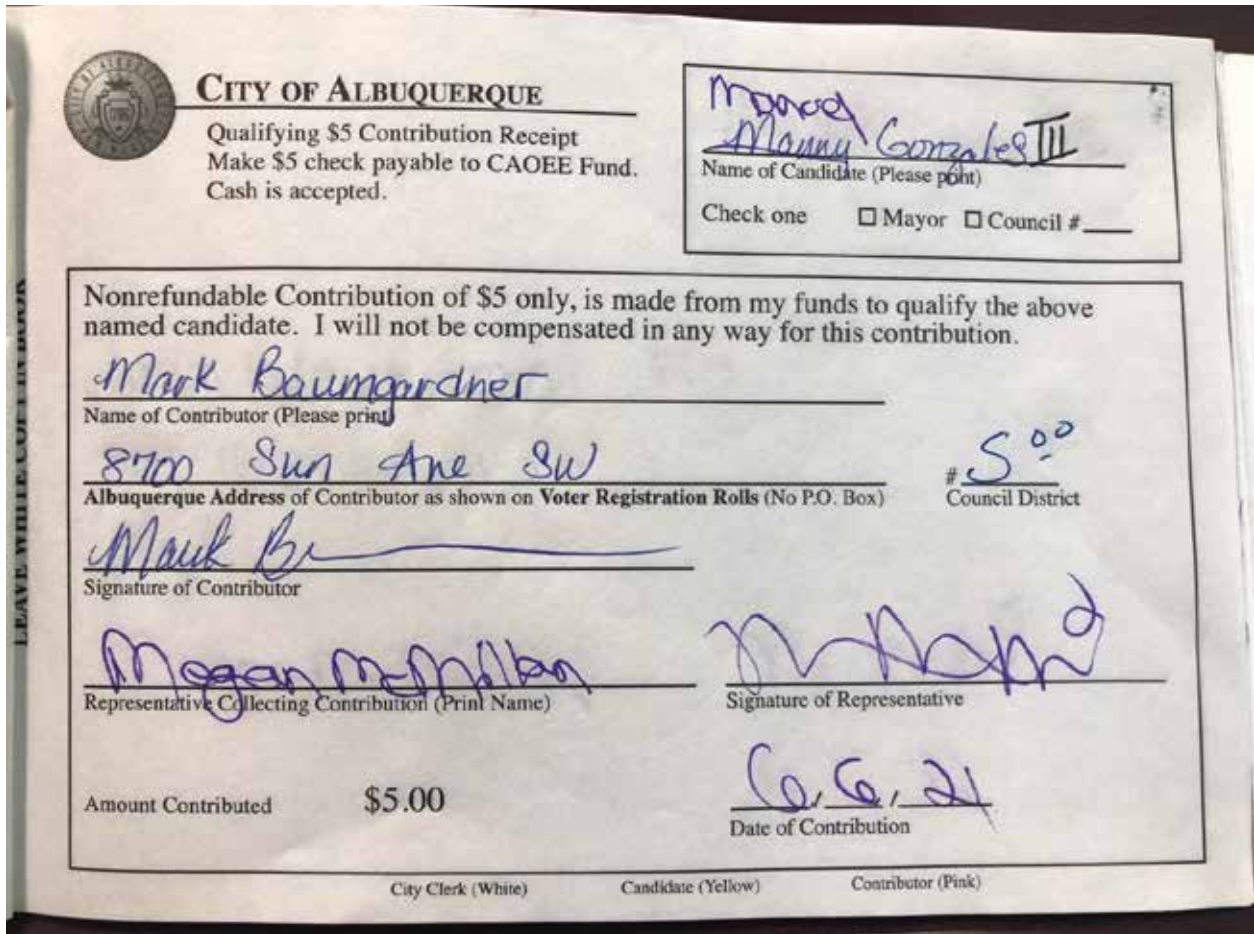 CITY OF ALBUQUERQUE
Qualifying $5 Contribution Receipt
Make $5 check payable to CAOEE Fund.
Cash is accepted.
Manny Gonzales III
Name of Candidate (Please print)
Check one ☐ Mayor ☐ Council #
Nonrefundable Contribution of $5 only, is made from my funds to qualify the above
named candidate. I will not be compensated in any way for this contribution.
Mark Baumgardner
Name of Contributor (Please print)
8700 Sun Ave SW
# 5 00
Albuquerque Address of Contributor as shown on Voter Registration Rolls (No P.O. Box)
Council District
Mark
Signature of Contributor
Megan McMillan
Representative Collecting Contribution (Print Name)
Signature of Representative
Amount Contributed $5.00
6.6.21
Date of Contribution
City Clerk (White) Candidate (Yellow) Contributor (Pink)
LEAVE WHITE COPY IN BOOK